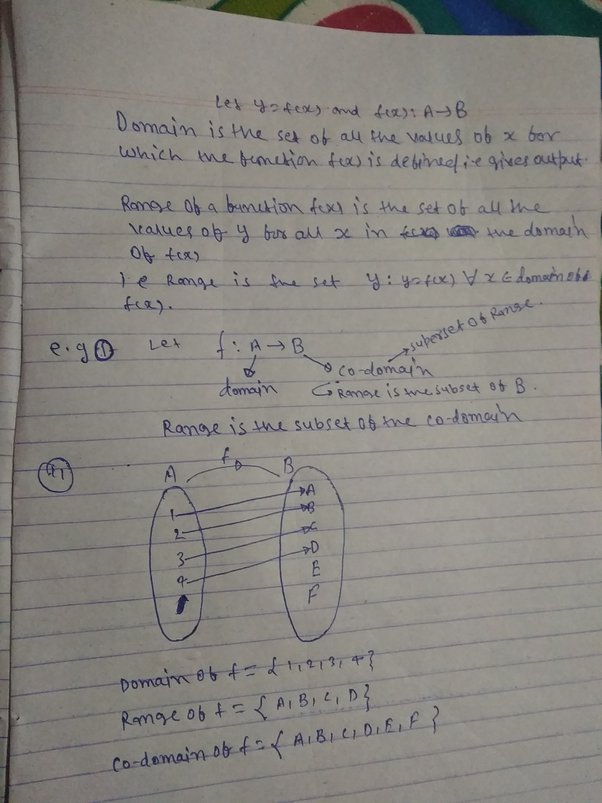 Let y=f(x) and f(x): A→B
Domain is the set of all the values of x for
which the function f(x) is defined i.e gives output.
Range of a function f(x) is the set of all the
values of y for all x in the domain
of f(x)
i.e Range is the set y: y=f(x) ∀ x ∈ domain of
f(x).
e.g ① Let f: A → B
superset of Range.
co-domain
domain
Range is the subset of B.
Range is the subset of the co-domain
f
A B
1 A
2 B
3 C
4 D
E
F
Domain of f = {1,2,3,4}
Range of f = {A,B,C,D}
co-domain of f = {A,B,C,D,E,F}